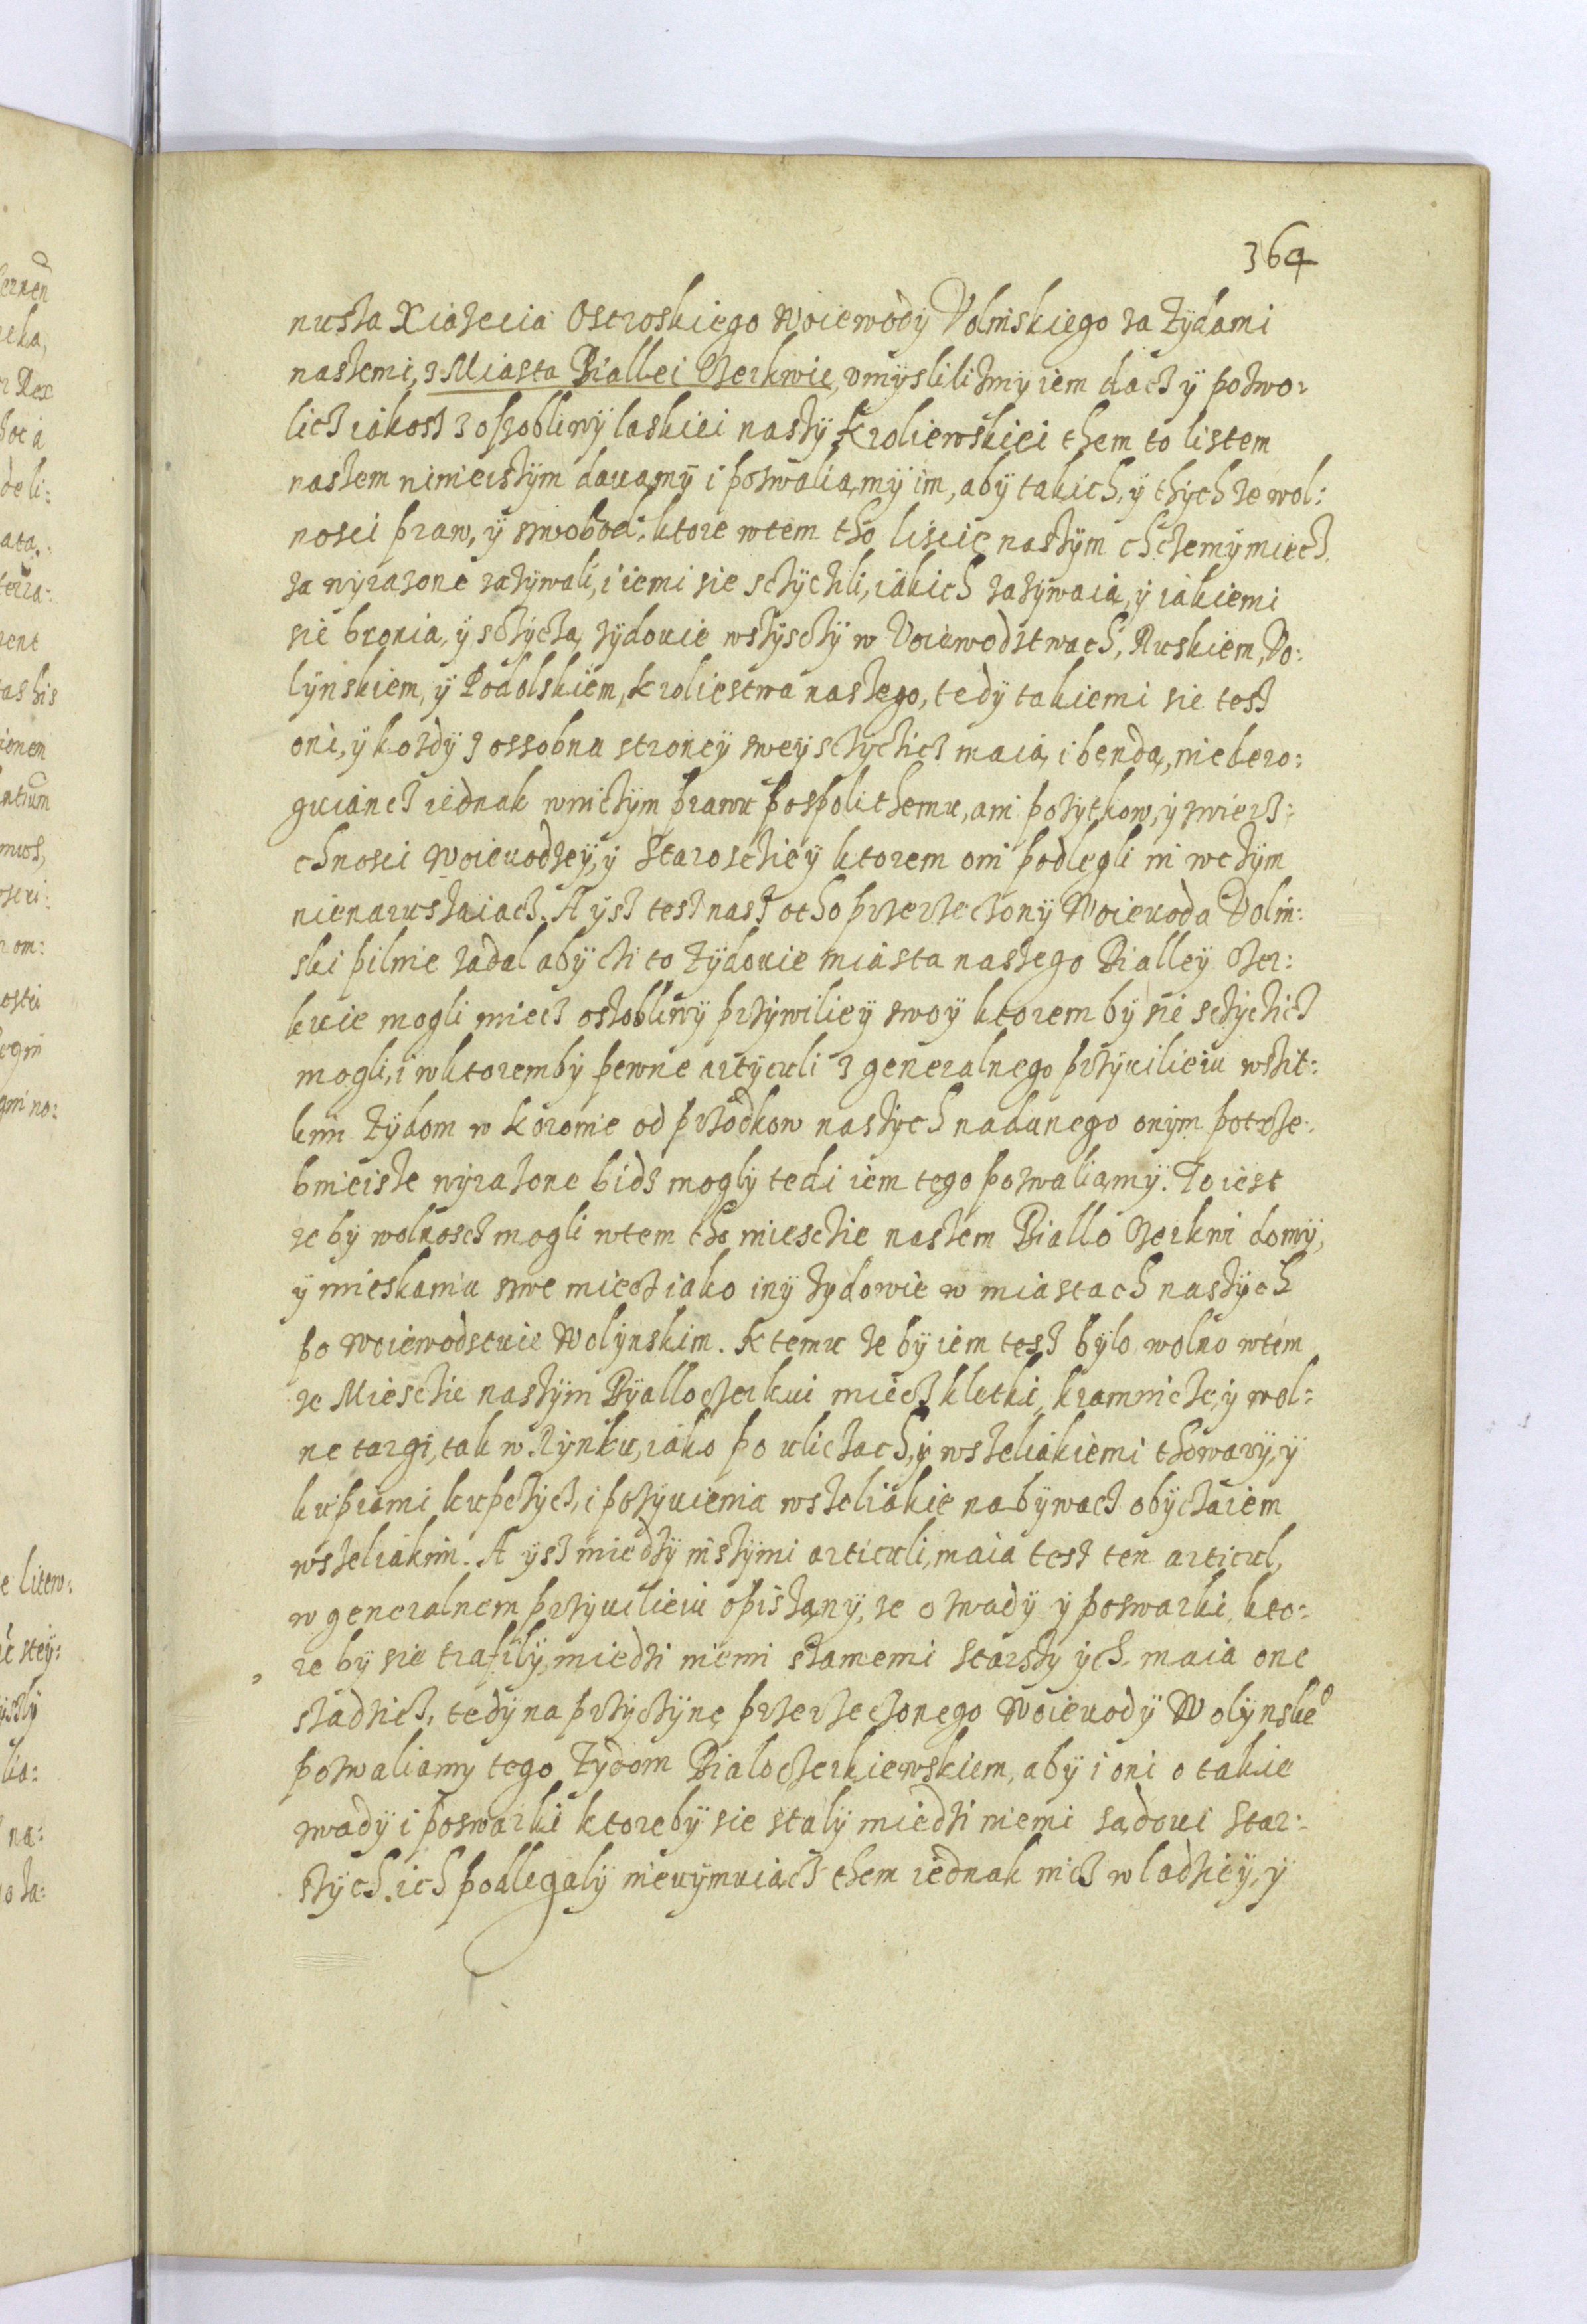 364
nusza Xiazecia Ostroskiego Woiewodÿ Volinskiego za Zÿdami
naszemi, z Miasta Biallei Czerkwie, vmÿslilizmÿ iem dacz ÿ pozwo:
licz iakosz z oszobliwÿ laskiei naszÿ Kroliewskiei them to listem
naszem ninieiszÿm dauamÿ i pozwaliamÿ im, abÿ takich, ÿ thÿch ze wol:
nosci praw, ÿ swobod, ktore wtem tho liscie naszÿm chczemÿ miecz
za wÿrazone zazÿwali, i iemi sie sczÿczili, iakich zazÿwaia, ÿ iakiemi
sie bronia, ÿ sczÿcza zÿdouie wszÿsczÿ w Voiewodztwach, Ruskiem, Vo:
lÿnskiem, ÿ Podolskiem, kroliestwa naszego, tedÿ takiemi sie tesz
oni, ÿ kozdÿ z ossobna stroneÿ sweÿ sczÿczicz maia, i benda, niedero:
guiancz iednak wniczÿm prawu pospolithemu, ani pozÿtkow, ÿ zwierz:
chnosci Woieuodzeÿ, ÿ Starosczieÿ ktorem oni podlegli ni wczÿm
nienaruszaiacz. A ÿsz tesz nasz otho przerzeczonÿ Woieuoda Volin:
ski pilnie zadal abÿ czi to Zÿdouie miasta naszego Bialleÿ Czer:
kuie mogli miecz oszobliwÿ przÿwilieÿ swoÿ ktorem bÿ sie sczÿczicz
mogli, i wktorembÿ pewne artÿculi z generalnego przÿuilieiu wszit:
kim Zÿdom w Koronie od przodkow naszÿch nadanego onÿm potrze:
bnieisze wÿrazone bidz moglÿ tedi iem tego pozwaliamÿ. To iest
ze bÿ wolnoscz mogli wtem tho miesczie naszem Biallo Czerkwi domÿ,
ÿ mieskania swe miecz iako inÿ zÿdowie w miastach naszÿch
po Woiewodstuie Wolÿnskim. K temu ze bÿ iem tesz bÿlo wolno wtem
ze Miesczie naszÿm Bÿalloczerkui miecz kletki, kramnicze, ÿ wol:
ne targi, tak w Rÿnku, iako po uliczach, ÿ wszeliakiemi thowarÿ, ÿ
kupiami kupczÿcz, i pozÿuienia wszeliakie nabÿwacz obÿczaiem
wszeliakim. A ÿsz miedzÿ inszÿmi articuli, maia tesz ten articul,
w generalnem przÿuilieiu opiszanÿ, ze o zwadÿ ÿ poswarki, kto:
re bÿ sie trafilÿ, miedzi niemi szamemi starszÿ ÿch maia one
szadzicz, tedÿ na przÿczÿne przerzeczonego Woieuodÿ Wolÿnskeo
pozwaliamy tego Zÿdom Bialoczerkiewskiem, abÿ i oni o takie
zwadÿ i poswarki ktorebÿ sie stalÿ miedzi niemi sadoui star:
szÿch ich podlegalÿ nieuÿmuiacz them iednak nicz wladzieÿ, ÿ